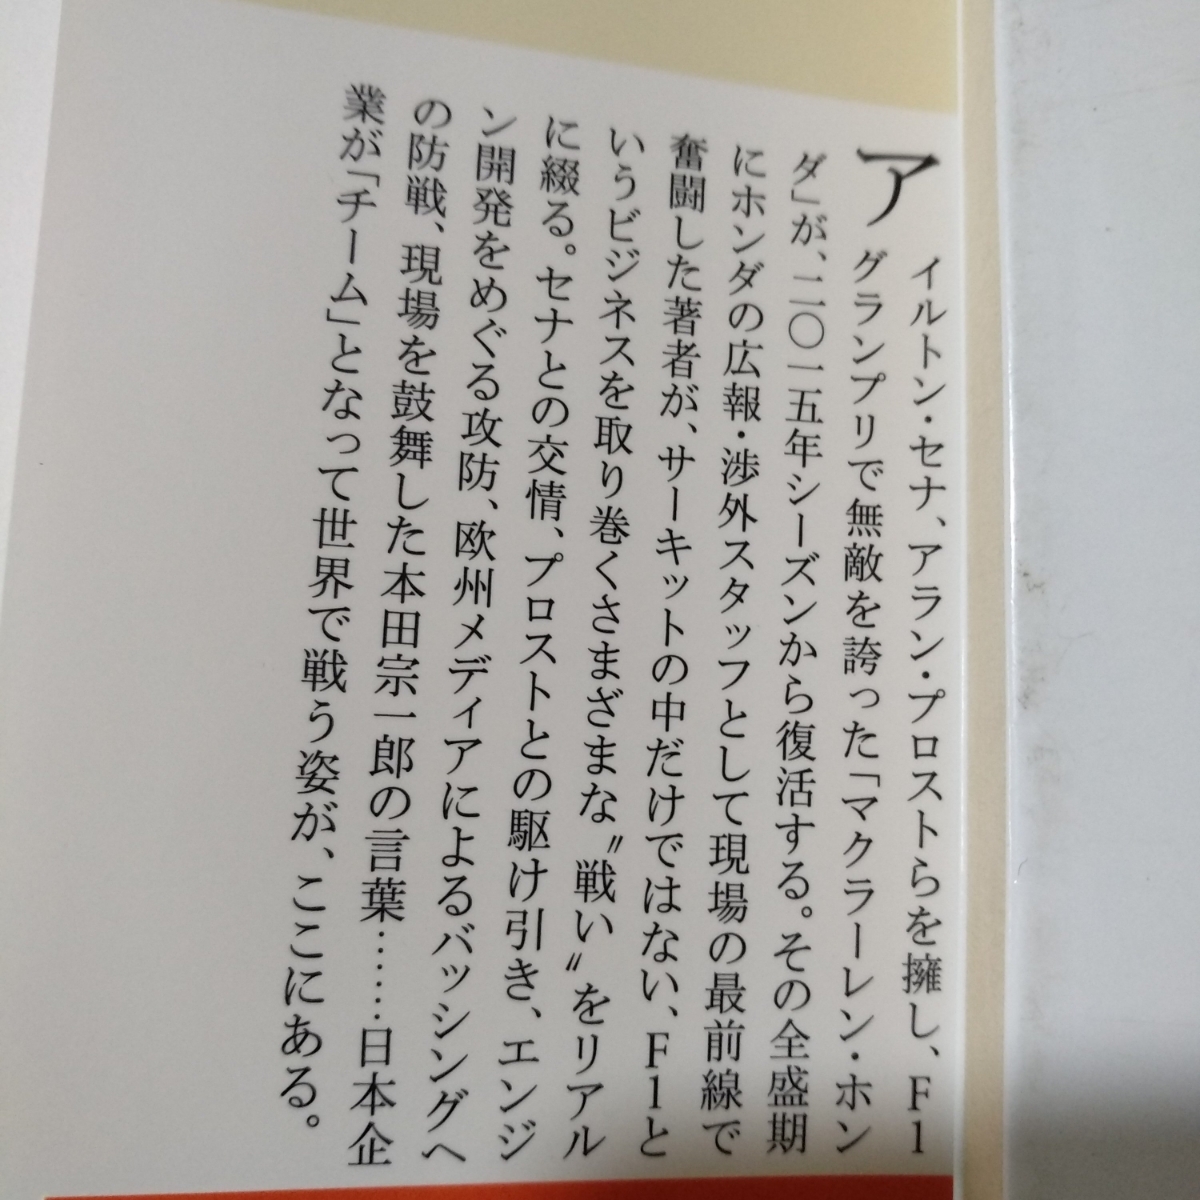 アイルトン・セナ、アラン・プロストらを擁し、F1
グランプリで無敵を誇った「マクラーレン・ホン
ダ」が、二〇一五年シーズンから復活する。その全盛期
にホンダの広報・渉外スタッフとして現場の最前線で
奮闘した著者が、サーキットの中だけではない、F1と
いうビジネスを取り巻くさまざまな〝戦い〟をリアル
に綴る。セナとの交情、プロストとの駆け引き、エンジ
ン開発をめぐる攻防、欧州メディアによるバッシングへ
の防戦、現場を鼓舞した本田宗一郎の言葉……日本企
業が「チーム」となって世界で戦う姿が、ここにある。